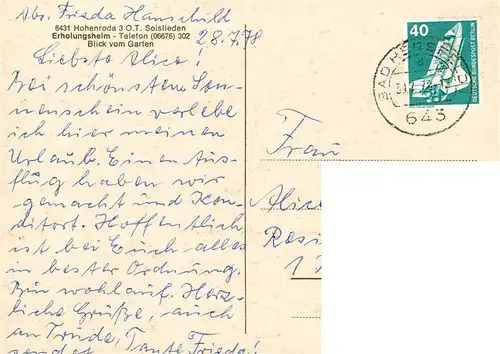 Abs. Frieda Hanschild
6431 Hohenroda 3 O.T. Soislieden
Erholungsheim - Telefon (06676) 302
Blick vom Garten
28.7.78
Liebste Alice!
Bei schönstem Son-
nenschein verlebe
ich hier meinen
Urlaub. Einen Aus-
flug haben wir
gemacht und Kon-
ditort. Hoffentlich
ist bei Euch alles
in bester Ordnung.
Bin wohlauf. Herz-
liche Grüße, auch
an Trude, Tante Frieda!
sendet
40
DEUTSCHE BUNDESPOST BERLIN
BAD HERSFELD
643
Frau
Alice
Resi
1